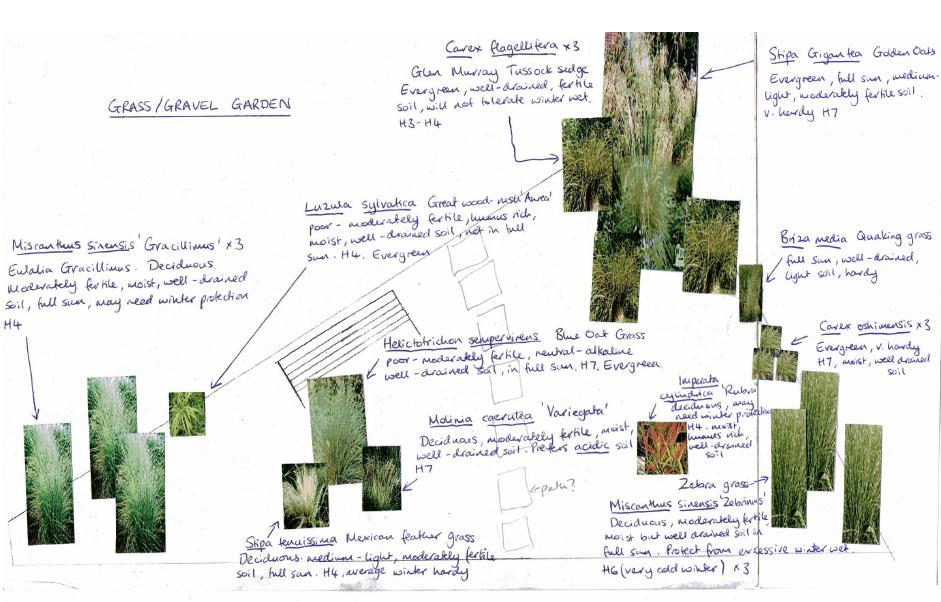 GRASS/GRAVEL GARDEN
Carex flagellifera x3
Glen Murray Tussock sedge
Evergreen, well-drained, fertile
soil, will not tolerate winter wet.
H3-H4
Stipa Gigantea Golden Oats
Evergreen, full sun, medium-
light, moderately fertile soil.
v. hardy H7
Luzula sylvatica Great wood-rush 'Aurea'
poor-moderately fertile, humus rich,
moist, well-drained soil, not in full
sun. H4. Evergreen
Miscanthus sinensis 'Gracillimus' x3
Eulalia Gracillimus. Deciduous.
Moderately fertile, moist, well-drained
soil, full sun, may need winter protection
H4
Briza media Quaking grass
full sun, well-drained,
light soil, hardy
Carex oshimensis x3
Evergreen, v. hardy
H7, moist, well drained
soil
Helictotrichon sempervirens Blue Oat Grass
poor-moderately fertile, neutral-alkaline
well-drained soil, in full sun. H7. Evergreen
Imperata
cylindrica 'Rubra'
deciduous, may
need winter protection
H4. moist,
humus rich,
well-drained
soil
Molinia caerulea 'Variegata'
Deciduous, moderately fertile, moist,
well-drained soil. Prefers acidic soil
H7
path?
Zebra grass
Miscanthus sinensis 'Zebrinus'
Deciduous, moderately fertile
Moist but well drained soil in
full sun. Protect from excessive winter wet.
H6 (very cold winter) x3
Stipa tenuissima Mexican feather grass
Deciduous. medium-light, moderately fertile
soil, full sun. H4, average winter hardy